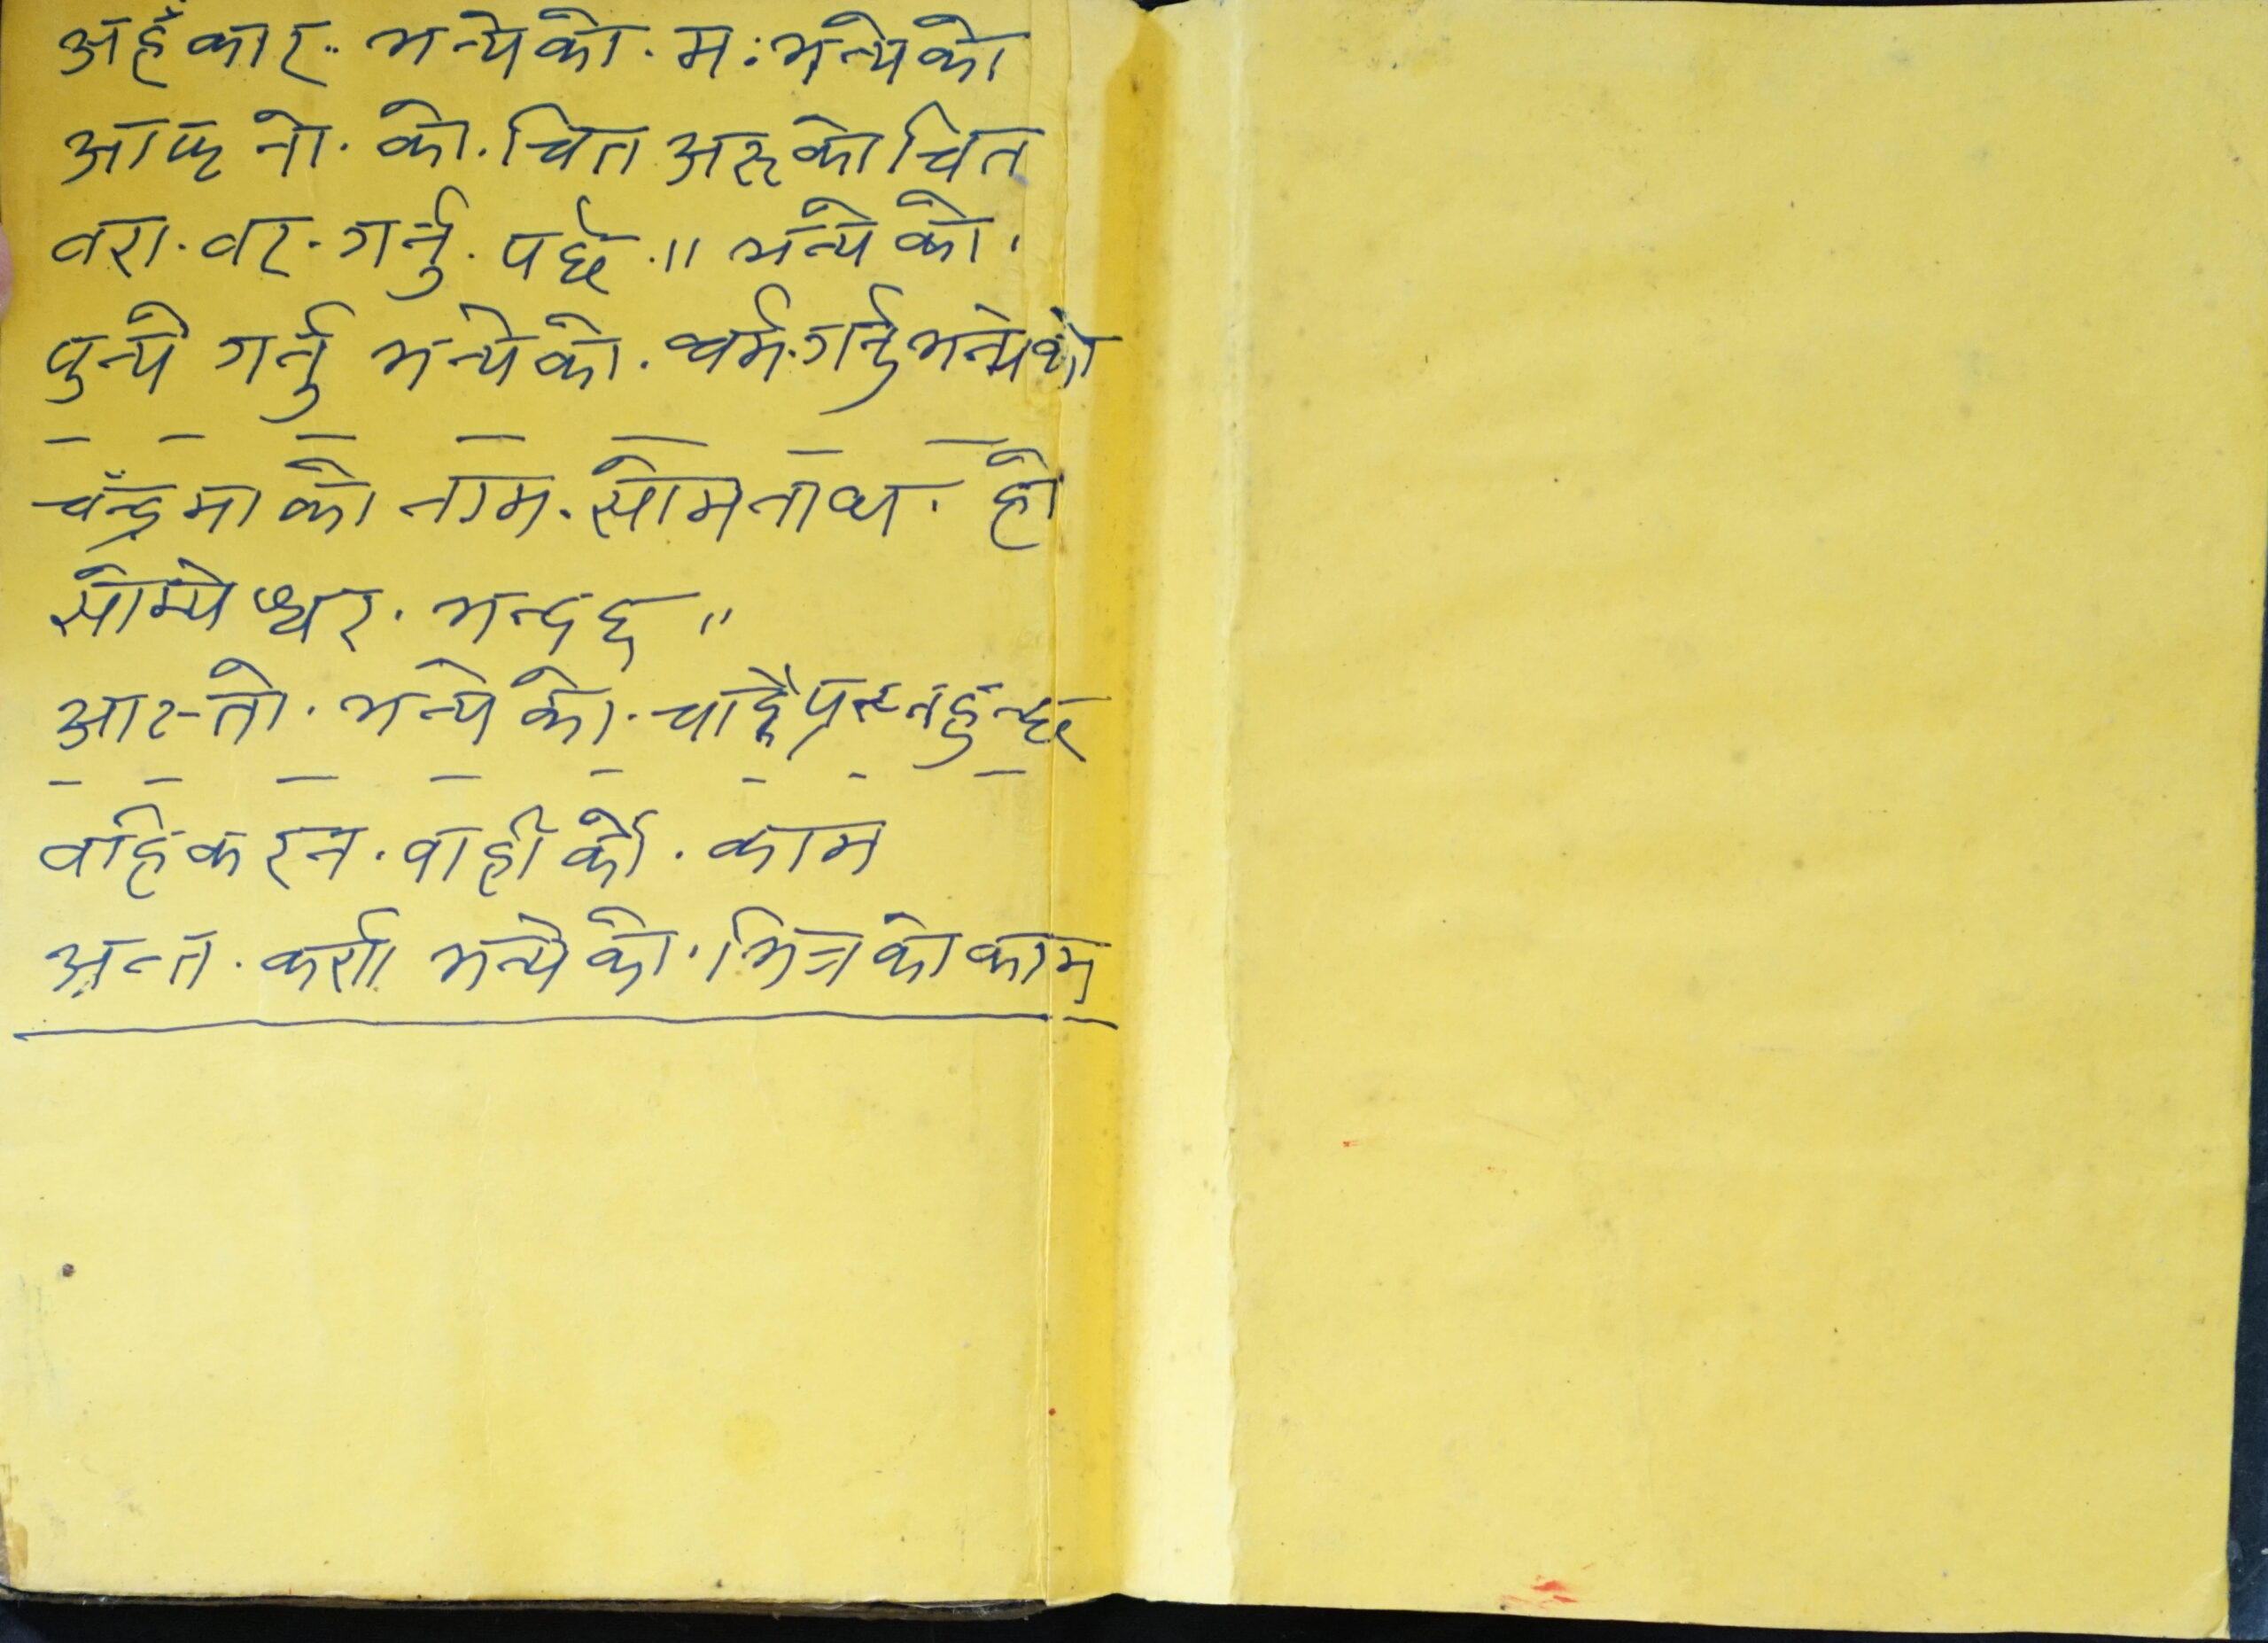 अहँकार. भन्येको. म. भन्येको
आफ्नो. को. चित अरूको चित
वरा. वर. गर्नु. पर्छ.॥ भन्येको.
पुन्ये गर्नु भन्येको. धर्म. गर्नु भन्येको
चँन्द्रमाको नाम. सोमनाथ. हो
सोम्येश्वर. भन्दछ॥
आस्तो. भन्येको. चाहै प्रस्न हुन्छ
वहिकरन. वाहीर्को. काम
अन्त. कर्ण भन्येको. भित्रको काम